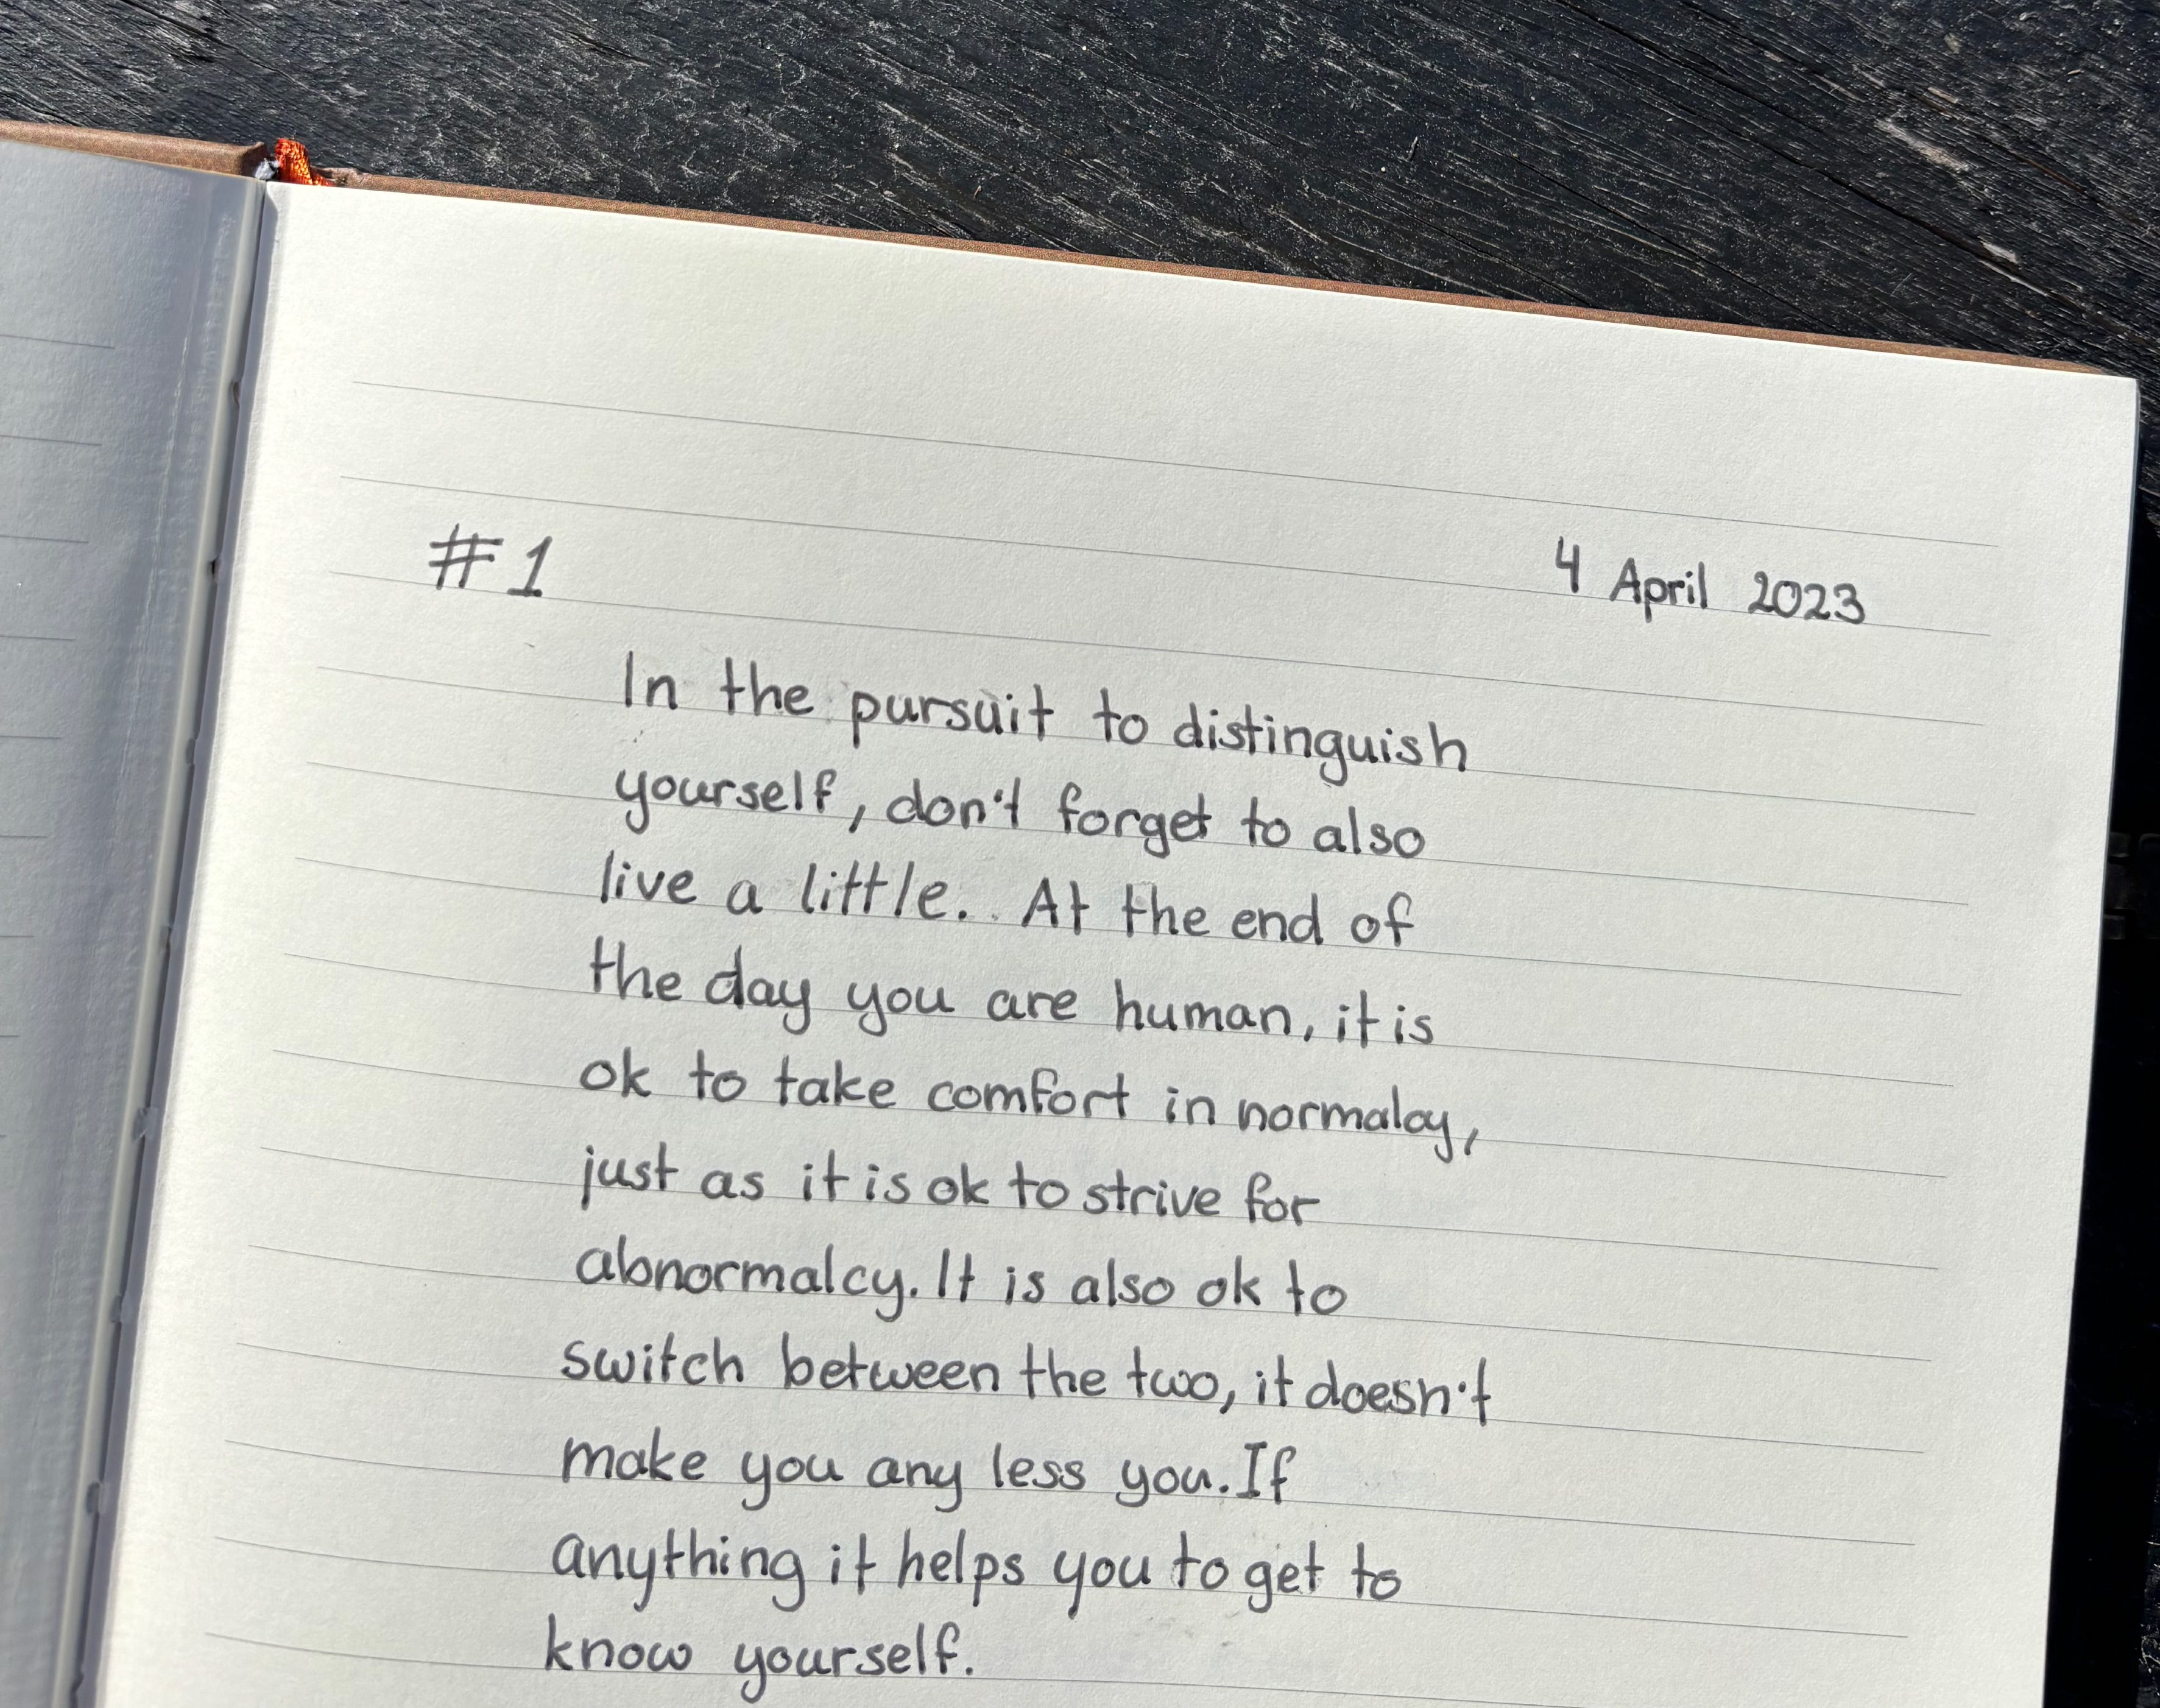 #1 4 April 2023
In the pursuit to distinguish
yourself, don't forget to also
live a little. At the end of
the day you are human, it is
ok to take comfort in normalcy,
just as it is ok to strive for
abnormalcy. It is also ok to
switch between the two, it doesn't
make you any less you. If
anything it helps you to get to
know yourself.